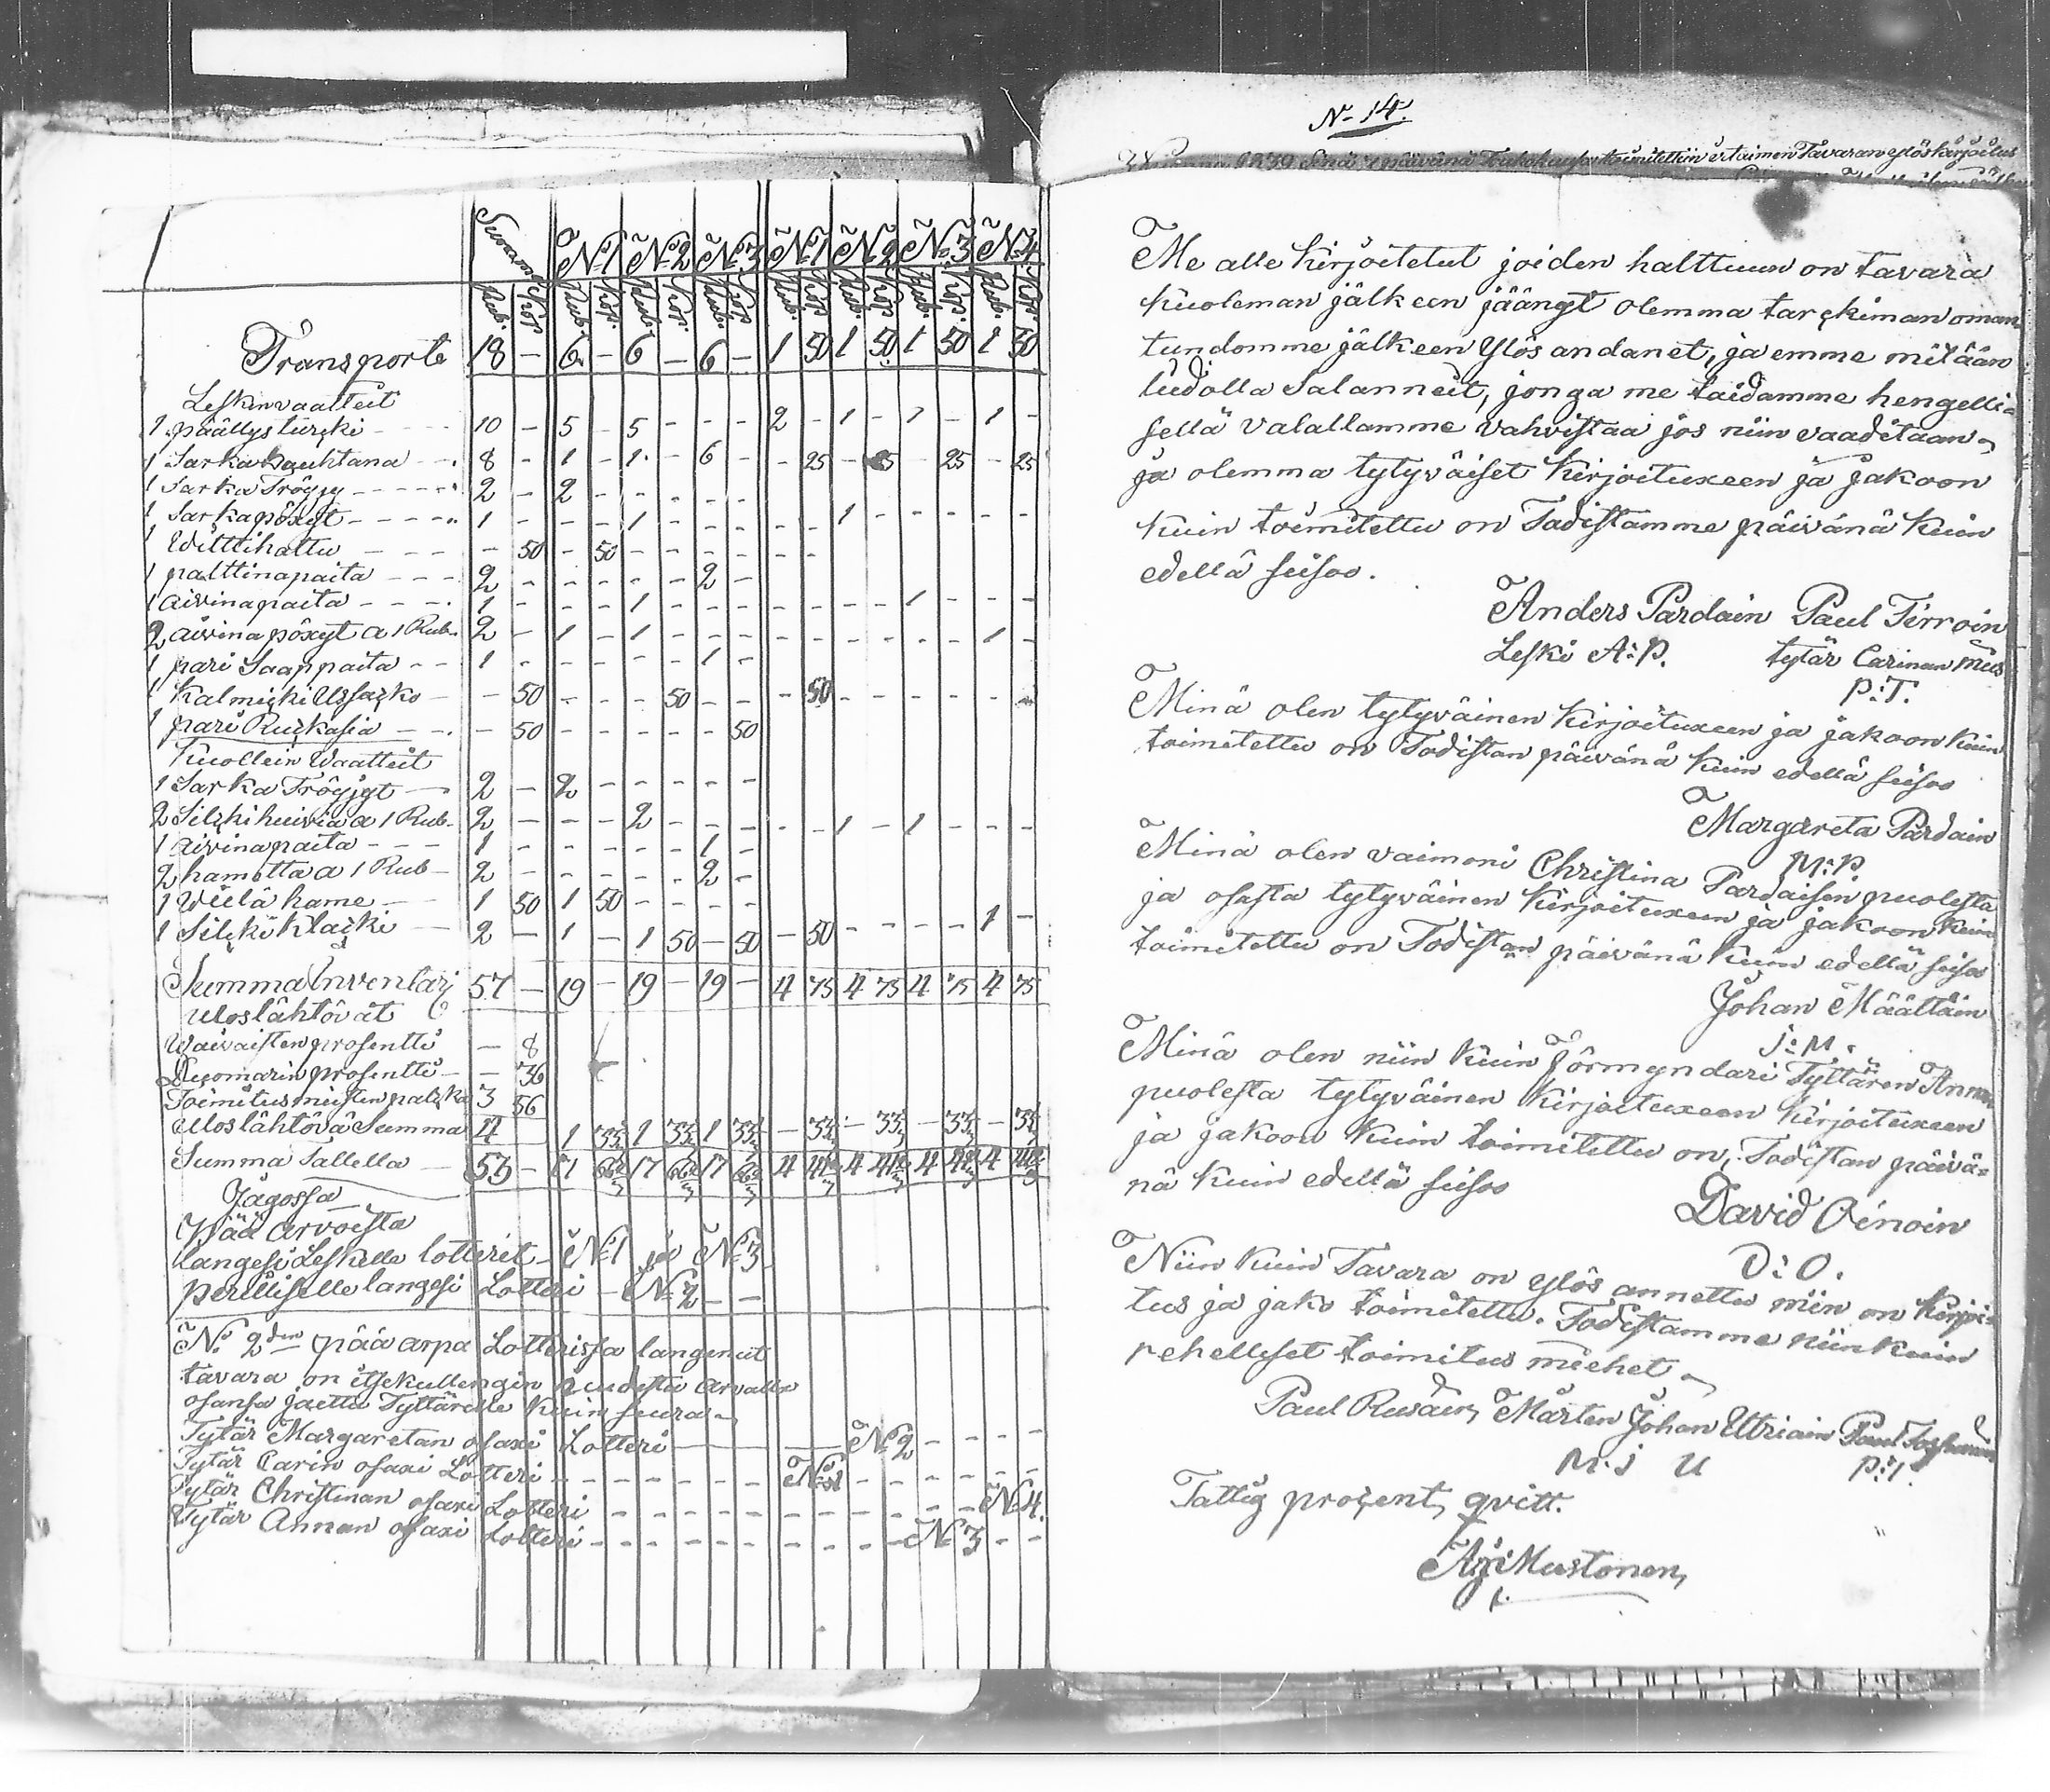 Summa N:1 N:2 N:3 N:1 N:2 N:3 N:4
Rub. Kop. Rub. Kop. Rub. Kop. Rub. Kop. Rub. Kop. Rub. Kop. Rub. Kop. Rub. Kop.
Transporte 18 – 6 – 6 – 6 – 1 50 1 50 1 50 1 50
Lesken vaatteit
1 päällystürcki 10 – 5 – 5 – – – 2 – 1 – 1 – 1 –
1 Sarka Kauhtana 8 – 1 – 1 – 6 – – 25 – 25 – 25 – 25
1 Sarka Tröyjy 2 – 2 – – – – –
1 Sarka pöxyt 1 – – – 1 – – – – – 1 – – – – –
1 Wilttihattu – 50 – 50 – – – – – –
1 palttinapaita 2 – – – – – 2 –
1 aivinapaita 1 – – – 1 – – – – – – – 1 – – –
2 aivina pöxyt a 1 Rub. 2 – 1 – 1 – – – – – – – – – 1 –
1 pari Saappaita 1 – – – – – 1 –
1 Kalmicki Ussacko – 50 – – – 50 – – – 50 – – – – – –
1 pari Ruckasia – 50 – – – – – 50
Kuollein Waatteit
1 Sarka Tröyjyt 2 – 2 – – – – –
2 Silckihuivia a 1 Rub. 2 – – – 2 – – – – – 1 – 1 – – –
1 aivinapaita 1 – – – – – 1 –
2 hametta a 1 Rub 2 – – – – – 2 –
1 Wiilä hame 1 50 1 50 – – – –
1 Silcki Klacki 2 – 1 – 1 50 – 50 – 50 – – – – 1 –
Summa Inventarj 57 – 19 – 19 – 19 – 4 75 4 75 4 75 4 75
Uloslähtövät
Waivaisten prosentti – 8
Duomarin prosentti – 36
Toimitusmiesten palcka 3 56
Uloslähtövä Summa 4
Summa Tallella 53 –
Jagossa
Pää arvoista
langesi Leskelle lotterit N:1 ja N:3
perilliselle langesi Lotteri – N:2 – –
N:o 2den pää arpa Lotterissa langenut
tavara on itsekullengin arvalla
osansa jaettu Tyttärille kuin seura
Tytär Margaretan osaxi Lotteri N:2
Tytär Carin osaxi Lotteri N:1
Tytär Christinan osaxi Lotteri N:4.
Tytär Annan osaxi Lotteri N:3
N:14.
1839 Sinä päivänä Toukokuusa toimitettiin irtaimen Tavaran ylöskirjoitus
Me alle Kirjoitetut joiden halttuun on tavara
Kuoleman jälkeen jäängt olemma tarckiman oman
tundomme jälkeen ylös andanet, ja emme mitään
luvolla Salanneit, jonga me taidamme hengelli=
sellä valallamme vahvistaa jos niin vaaditaan
ja olemma tytyväiset Kirjoituxeen ja jakoon
kuin toimitettu on Todistamme päivänä Kuin
edellä seisoo.
Anders Pardain Paul Tërroin
Leski A:P. tytär Carinan mies
P:T.
Minä olen tytyväinen Kirjoituxeen ja jakoon kuin
toimitettu on Todistan päivänä Kuin edellä seisoo
Margareta Pardain
M:P.
Minä olen vaimoni Christina Pardaisen puolesta
ja osasta tytyväinen Kirjoituxeen ja jakoon Kuin
toimitettu on Todistan päivänä Kuin edellä seiso
Johan Määttäin
J:M.
Minä olen niin Kuin Förmyndari Tyttären Annan
puolesta tytyväinen Kirjoituxeen kirjoituxeen
ja jakoon Kuin toimitettu on, Todistan päivä=
nä Kuin edellä seisoo
David Oinoin
D:O.
Niin Kuin Tavara on ylös annettu niin on Kirjoi=
tus ja jako toimitettu. Todistamme niinkuin
rehelliset toimitus miehet
Paul Rusäin, Mårten Johan Ettriain
M:J U P:T.
Fattig procent, qvitt.
Mustonen,